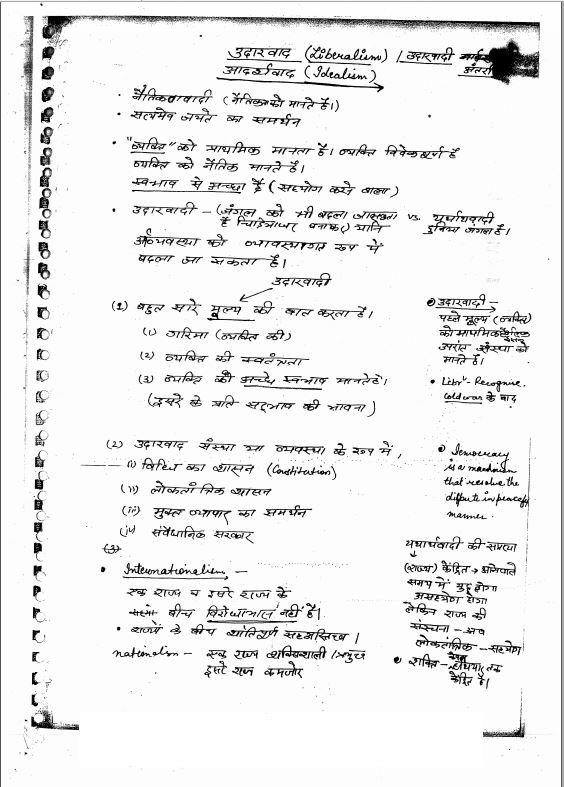 उदारवाद (Liberalism) / उदारवादी
आदर्शवाद (Idealism)
• नैतिकतावादी (नैतिकता को मानते हैं।)
• सत्यमेव जयते का समर्थन
• "व्यक्ति" को प्राथमिक मानता है। व्यक्ति विवेकपूर्ण है
व्यक्ति को नैतिक मानते है।
स्वभाव से अच्छा है (सहयोग करने वाला)
• उदारवादी – (जंगल को भी बदला जा सकता vs. यथार्थवादी
है चिडियाघर बनाकर) शांति दुनिया जंगल है।
अव्यवस्था को व्यवस्थागत रूप में
बदला जा सकता है।
उदारवादी
(1) बहुत सारे मूल्य की बात करता है।
(1) गरिमा (व्यक्ति की)
(2) व्यक्ति की स्वतंत्रता
(3) व्यक्ति की अच्छे स्वभाव मानते है।
(दूसरे के प्रति सद्भाव की भावना)
• उदारवादी –
पहले मूल्य (व्यक्ति)
को प्राथमिक
संस्था को
मानते है।
• Libr" - Recognise.
Cold war के बाद
(2) उदारवाद संस्था या व्यवस्था के रूप में,
(i) विधि का शासन (Constitution)
(ii) लोकतांत्रिक शासन
(iii) मुक्त व्यापार का समर्थन
(iv) संवैधानिक सरकार
(3)
• Democracy
is a
that resolve the
dispute in
manner.
• Internationalism –
एक राज्य व दूसरे राज्य के
बीच विरोधाभास नहीं है।
• राज्यों के बीच शांतिपूर्ण सहअस्तित्व।
nationalism – एक राज्य शक्तिशाली / प्रमुख
दूसरे राज्य कमजोर
यथार्थवादी की समस्या
(राज्य) केंद्रित →
समय में युद्ध होगा
असहयोग होगा
लेकिन राज्य की
संरचना – अब
लोकतांत्रिक – सहयोग
• शक्ति – हथियार तक
केंद्रित है।